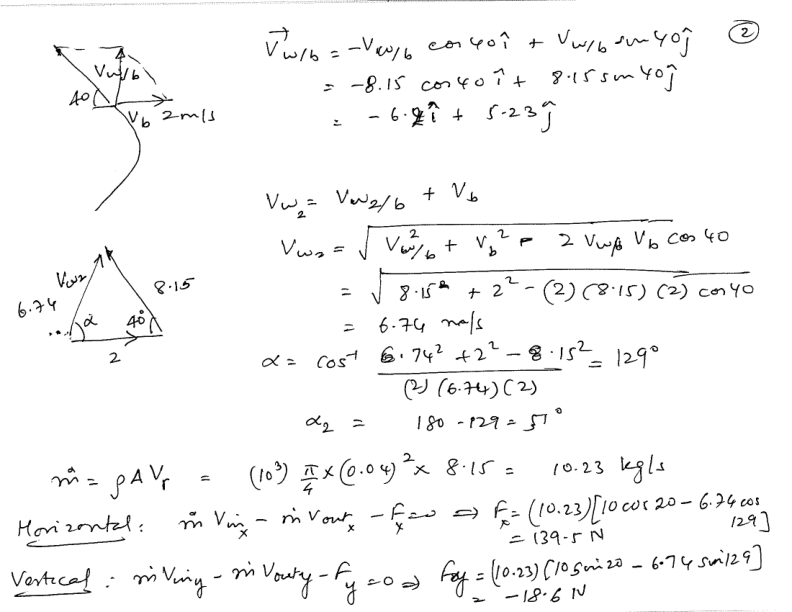 ②
V⃗w/b = -Vw/b cos 40 î + Vw/b sin 40 ĵ
= -8.15 cos 40 î + 8.15 sin 40 ĵ
= -6.2 î + 5.23 ĵ
Vw/b
40
Vb 2 m/s
Vw2 = Vw2/b + Vb
Vw2 = √(Vw/b² + Vb² - 2 Vw/b Vb cos 40
= √(8.15² + 2² - (2)(8.15)(2) cos 40
= 6.74 m/s
Vw2
6.74
8.15
α
40°
2
α = cos⁻¹ (6.74² + 2² - 8.15²) / ((2)(6.74)(2)) = 129°
α2 = 180 - 129 = 51°
ṁ = ρ A Vr = (10³) π/4 × (0.04)² × 8.15 = 10.23 kg/s
Horizontal: ṁ Vinx - ṁ Voutx - Fx = 0 ⇒ Fx = (10.23)[10 cos 20 - 6.74 cos 129]
= 139.5 N
Vertical: ṁ Viny - ṁ Vouty - Fy = 0 ⇒ Fy = (10.23)(10 sin 20 - 6.74 sin 129]
= -18.6 N